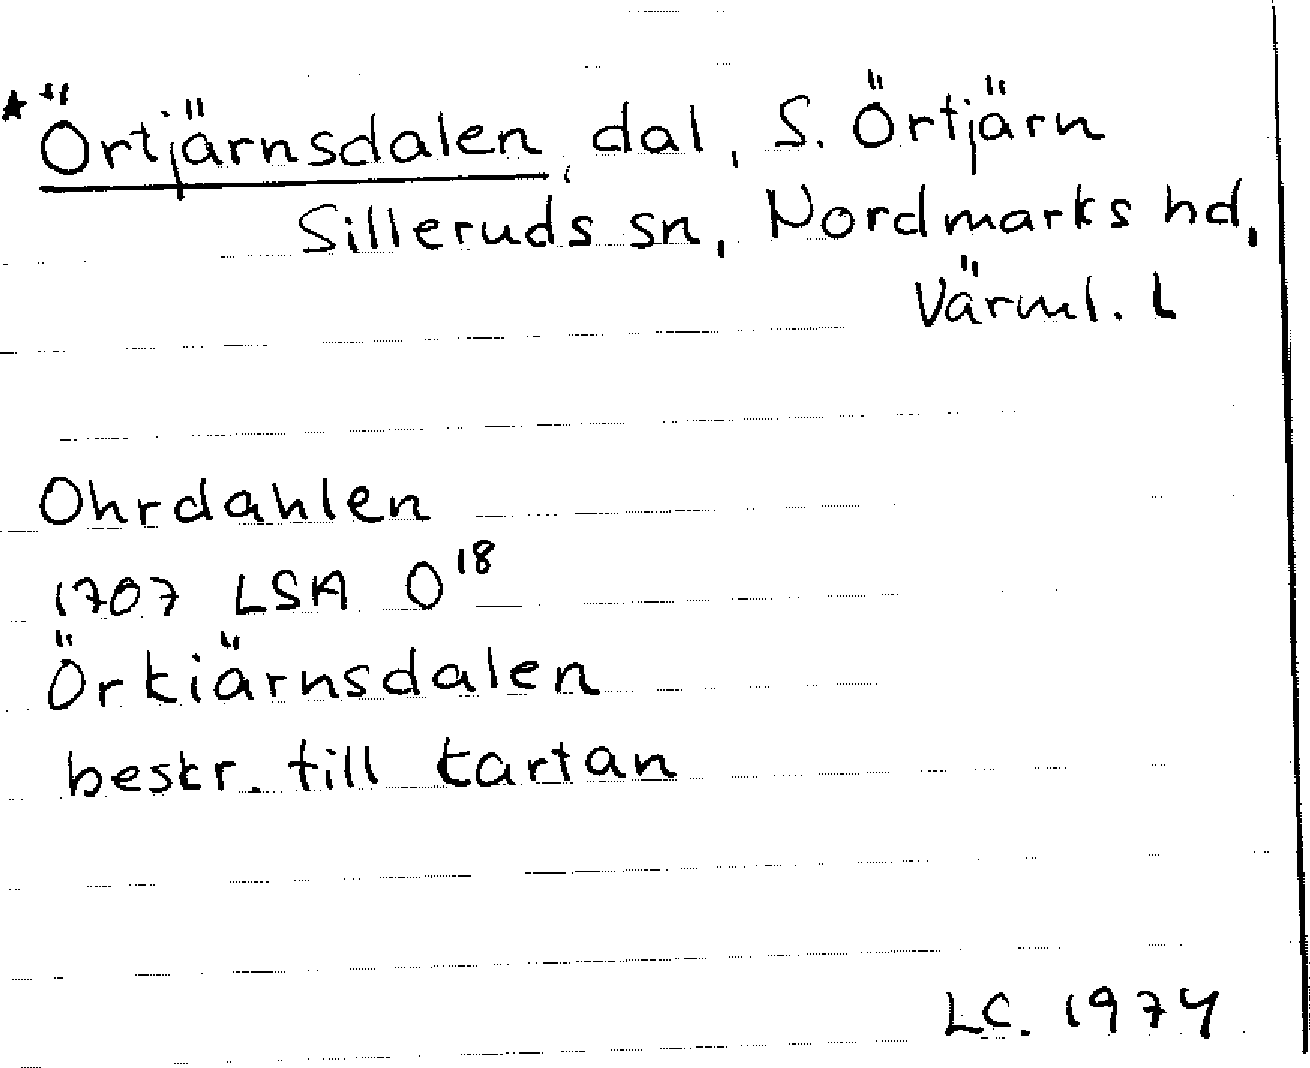 *Örtjärnsdalen, dal, S. Örtjärn
Silleruds sn, Nordmarks hd,
Värml. l
Ohrdahlen
1707 LSA O18
Örkiärnsdalen
beskr. till kartan
LC. 1974